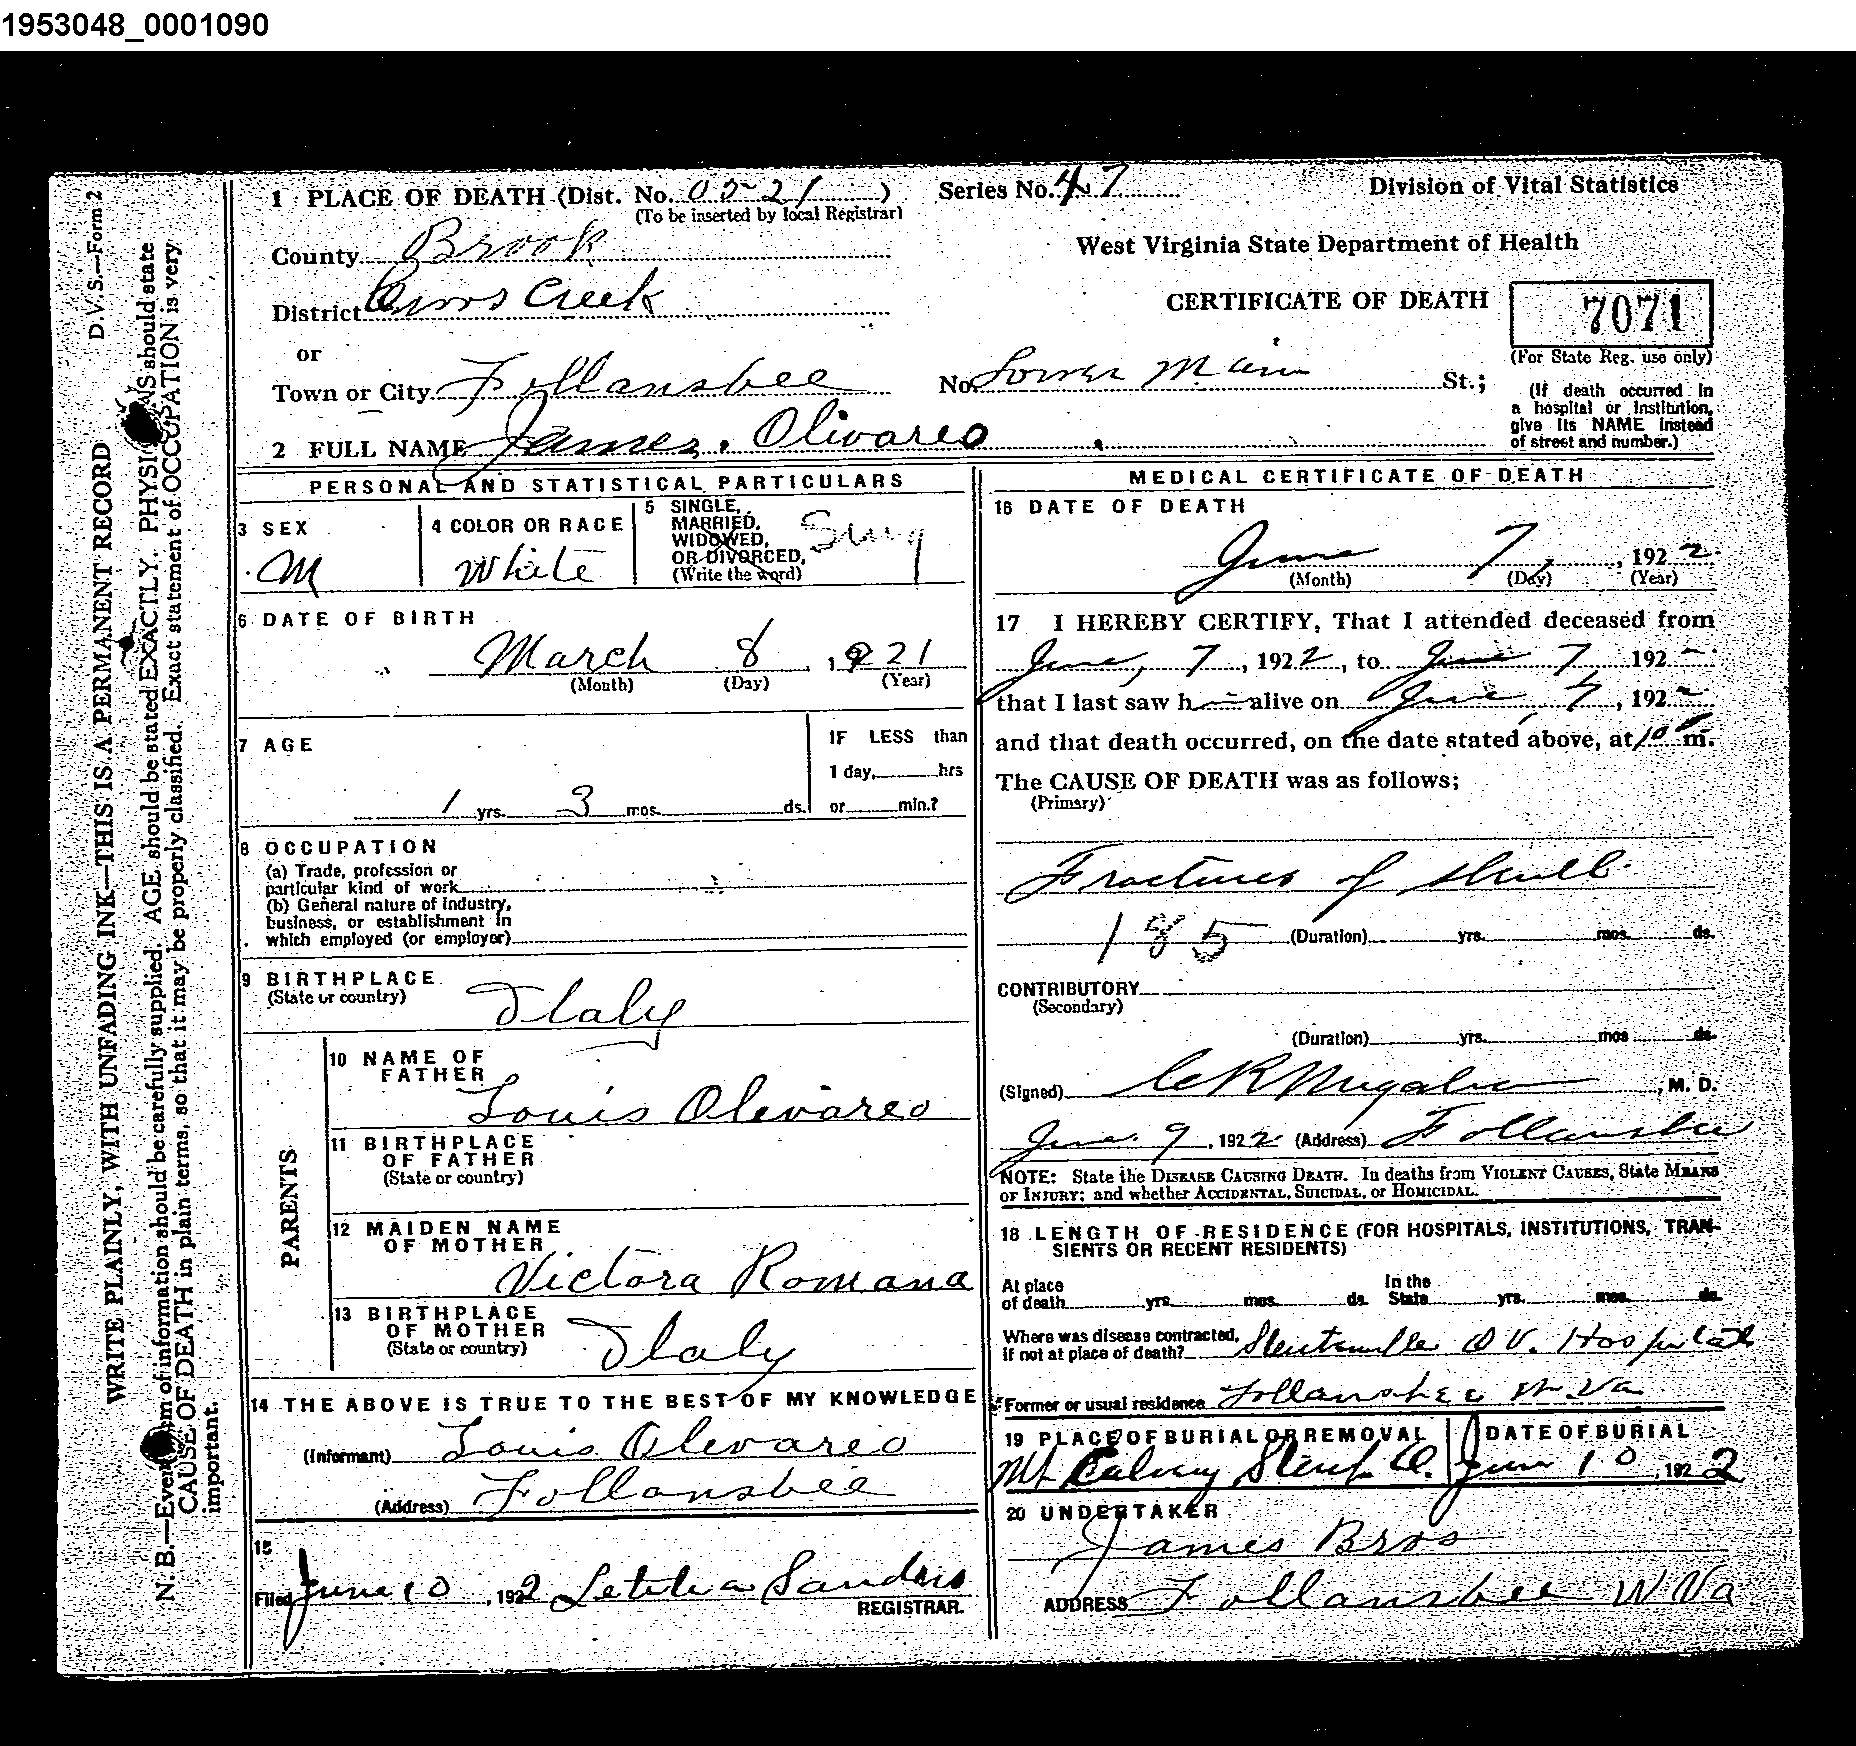 1953048_0001090
D.V.S.—Form 2
WRITE PLAINLY, WITH UNFADING INK—THIS IS A PERMANENT RECORD
N. B.—Every item of information should be carefully supplied. AGE should be stated EXACTLY. PHYSICIANS should state
CAUSE OF DEATH in plain terms, so that it may be properly classified. Exact statement of OCCUPATION is very
important.
1 PLACE OF DEATH (Dist. No. 05-21 ) Series No. 47 Division of Vital Statistics
(To be inserted by local Registrar)
County Brook West Virginia State Department of Health
District Cross Creek CERTIFICATE OF DEATH 7071
or (For State Reg. use only)
Town or City Follansbee No. Lower Main St.;
(If death occurred in
a hospital or institution,
give its NAME instead
of street and number.)
2 FULL NAME James. Olivareo
PERSONAL AND STATISTICAL PARTICULARS
3 SEX
M
4 COLOR OR RACE
White
5 SINGLE,
MARRIED,
WIDOWED,
OR DIVORCED,
(Write the word)
Sing
6 DATE OF BIRTH
March 8, 1921
(Month) (Day) (Year)
7 AGE
1 yrs. 3 mos. ds.
IF LESS than
1 day, hrs
or min.?
8 OCCUPATION
(a) Trade, profession or
particular kind of work
(b) General nature of industry,
business, or establishment in
which employed (or employer)
9 BIRTHPLACE
(State or country)
Italy
PARENTS
10 NAME OF
FATHER
Louis Olivareo
11 BIRTHPLACE
OF FATHER
(State or country)
12 MAIDEN NAME
OF MOTHER
Victora Romana
13 BIRTHPLACE
OF MOTHER
(State or country)
Italy
14 THE ABOVE IS TRUE TO THE BEST OF MY KNOWLEDGE
(Informant) Louis Olevareo
(Address) Follansbee
15
Filed June 10, 1922 Letitia Sanders
REGISTRAR.
MEDICAL CERTIFICATE OF DEATH
16 DATE OF DEATH
June 7, 1922
(Month) (Day) (Year)
17 I HEREBY CERTIFY, That I attended deceased from
June, 7, 1922, to June 7 192
that I last saw h alive on June, 7, 192
and that death occurred, on the date stated above, at 10 m.
The CAUSE OF DEATH was as follows;
(Primary)
Fracture of skull
185 (Duration) yrs. mos. ds.
CONTRIBUTORY
(Secondary)
(Duration) yrs. mos. ds.
(Signed) , M. D.
June 9, 1922 (Address) Follansbee
NOTE: State the DISEASE CAUSING DEATH. In deaths from VIOLENT CAUSES, State MEANS
OF INJURY; and whether ACCIDENTAL, SUICIDAL, or HOMICIDAL.
18 LENGTH OF RESIDENCE (FOR HOSPITALS, INSTITUTIONS, TRAN-
SIENTS OR RECENT RESIDENTS)
At place
of death yrs. mos. ds.
In the
State yrs. mos. ds.
Where was disease contracted,
if not at place of death? Steubenville O V. Hospital
Former or usual residence Follansbee W. Va
19 PLACE OF BURIAL OR REMOVAL
Mt Calvary Steub. O.
DATE OF BURIAL
June 10, 1922
20 UNDERTAKER
James Bros
ADDRESS Follansbee W Va